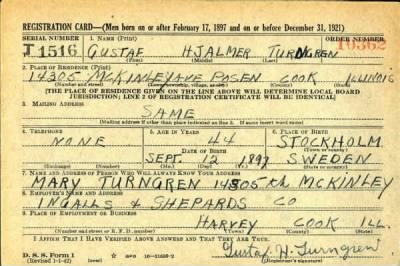 REGISTRATION CARD—(Men born on or after February 17, 1897 and on or before December 31, 1921)
SERIAL NUMBER 1. NAME (Print) ORDER NUMBER
T 1516 GUSTAF HJALMER TURNGREN 10362
(First) (Middle) (Last)
2. PLACE OF RESIDENCE (Print)
14305 MCKINLEY AVE POSEN COOK ILLINOIS
(Number and street) (Town, township, village, or city) (County) (State)
[THE PLACE OF RESIDENCE GIVEN ON THE LINE ABOVE WILL DETERMINE LOCAL BOARD
JURISDICTION; LINE 2 OF REGISTRATION CERTIFICATE WILL BE IDENTICAL]
3. MAILING ADDRESS
SAME
[Mailing address if other than place indicated on line 2. If same insert word same]
4. TELEPHONE 5. AGE IN YEARS 6. PLACE OF BIRTH
NONE 44 STOCKHOLM
DATE OF BIRTH (Town or county)
SEPT. 12 1897 SWEDEN
(Exchange) (Number) (Mo.) (Day) (Yr.) (State or country)
7. NAME AND ADDRESS OF PERSON WHO WILL ALWAYS KNOW YOUR ADDRESS
MARY TURNGREN 14305 MCKINLEY
8. EMPLOYER'S NAME AND ADDRESS
INGALLS & SHEPARDS CO
9. PLACE OF EMPLOYMENT OR BUSINESS
HARVEY COOK ILL.
(Number and street or R. F. D. number) (Town) (County) (State)
I AFFIRM THAT I HAVE VERIFIED ABOVE ANSWERS AND THAT THEY ARE TRUE.
D. S. S. Form 1
(Revised 1-1-42) (over) Gustaf H. Turngren